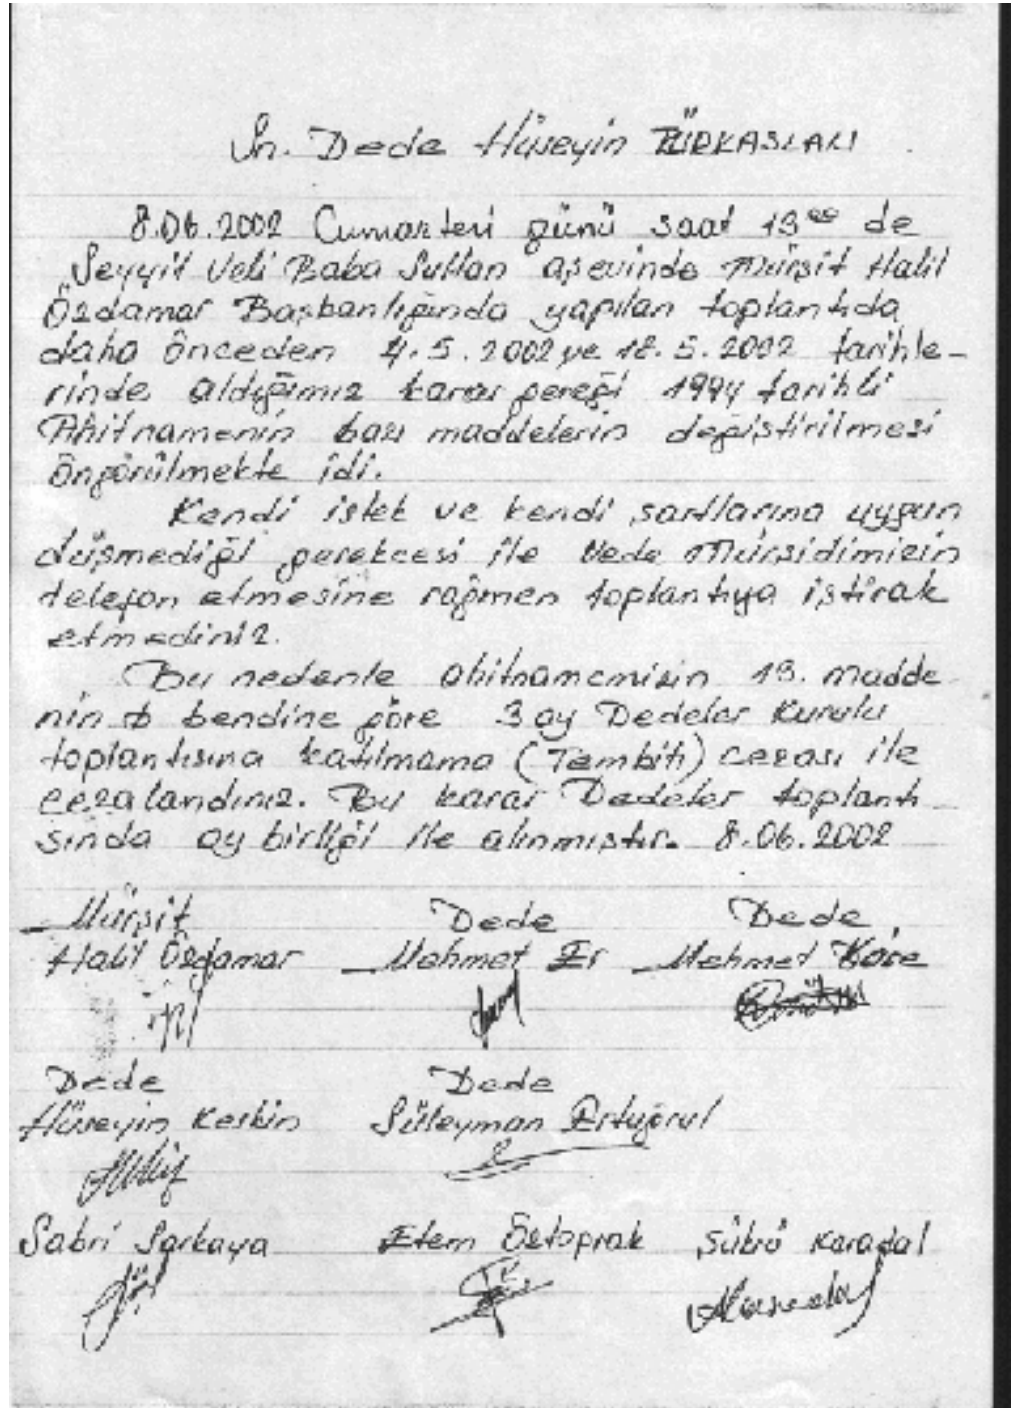 Sn. Dede Hüseyin TÜRKASLAN
8.06.2002 Cumartesi günü saat 13⁰⁰ de
Seyyit Veli Baba Sultan aşevinde Mürşit Halil
Özdamar Başbanlığında yapılan toplantıda
daha önceden 4.5.2002 ve 18.5.2002 tarihle-
rinde aldığımız karar gereği 1994 tarihli
Ahitnamenin bazı maddelerin değiştirilmesi
öngörülmekte idi.
Kendi istek ve kendi şartlarına uygun
düşmediği gerekcesi ile vede Mürşidimizin
telefon etmesine rağmen toplantıya iştirak
etmediniz.
Bu nedenle ahitnamemizin 13. madde
nin b bendine göre 3 ay Dedeler Kurulu
toplantısına katılmama (Tembiti) cezası ile
cezalandınız. Bu karar Dedeler toplantı
sında oy birliği ile alınmıştır. 8.06.2002
Mürşit Dede Dede
Halil Özdamar Mehmet Er Mehmet Köse
Dede Dede
Hüseyin Keskin Süleyman Ertuğrul
Sabri Sarkaya Etem Öztoprak Şükrü Karadal